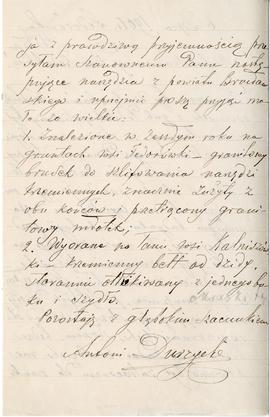 ja z prawdziwą przyjemnością prze-
syłam Szanownemu Panu nastę-
pujące narzędzia z powiatu
skiego i uprzejmie proszę przyjąć na
to za wielkie.
1. Znalezione w zeszłym roku na
gruntach wsi Fedorówki – granitowy
brusek do szlifowania narzędzi
krzemiennych, znacznie zużyty z
obu końców i przełączony grani-
towy młotek;
2. Wyorane na łanu wsi
ki – krzemienny bełt od dzidy
starannie obtłukiwany z jednego bo-
ku i szydło.
Pozostaję z głębokim szacunkiem
Antoni